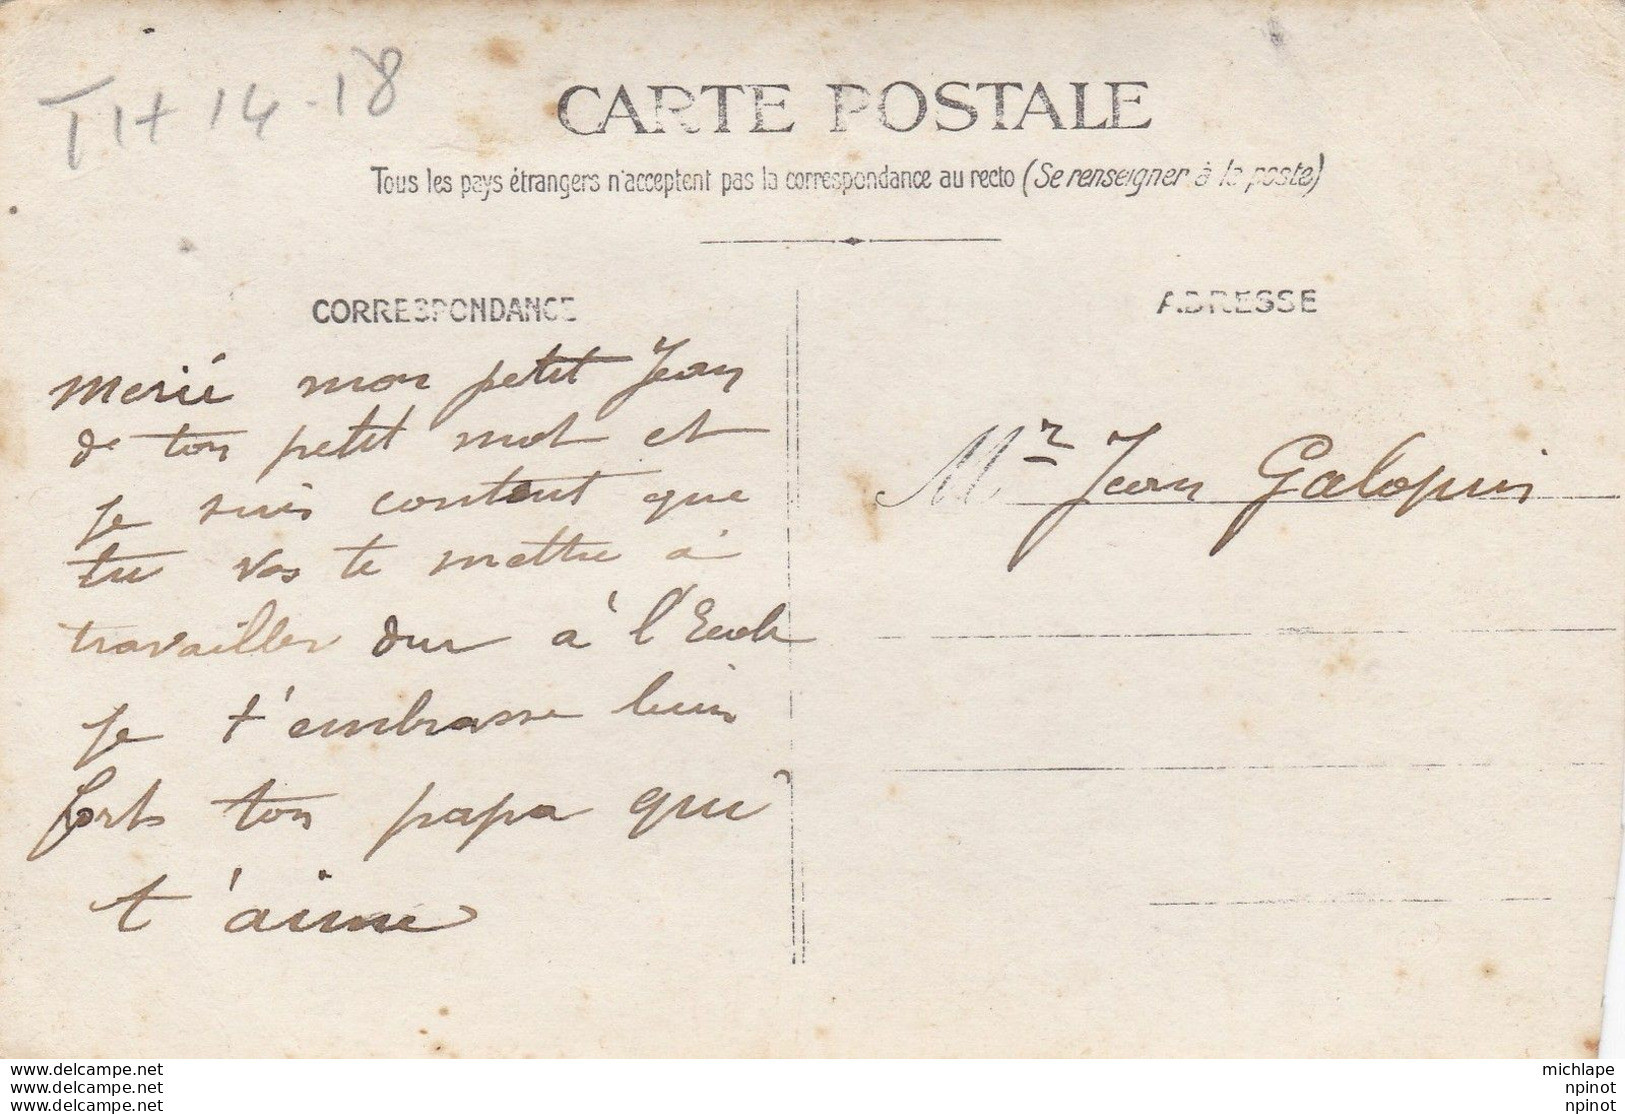 TH 14-18
CARTE POSTALE
Tous les pays étrangers n'acceptent pas la correspondance au recto (Se renseigner à la poste)
CORRESPONDANCE
ADRESSE
Merié mon petit Jean
de ton petit mot et
je suis content que
tu vas te mettre à
travailler dur à l'Ecole
je t'embrasse bien
forts ton papa qui
t'aime
Mr Jean Galopin
www.delcampe.net
www.delcampe.net
www.delcampe.net
michlape
npinot
npinot